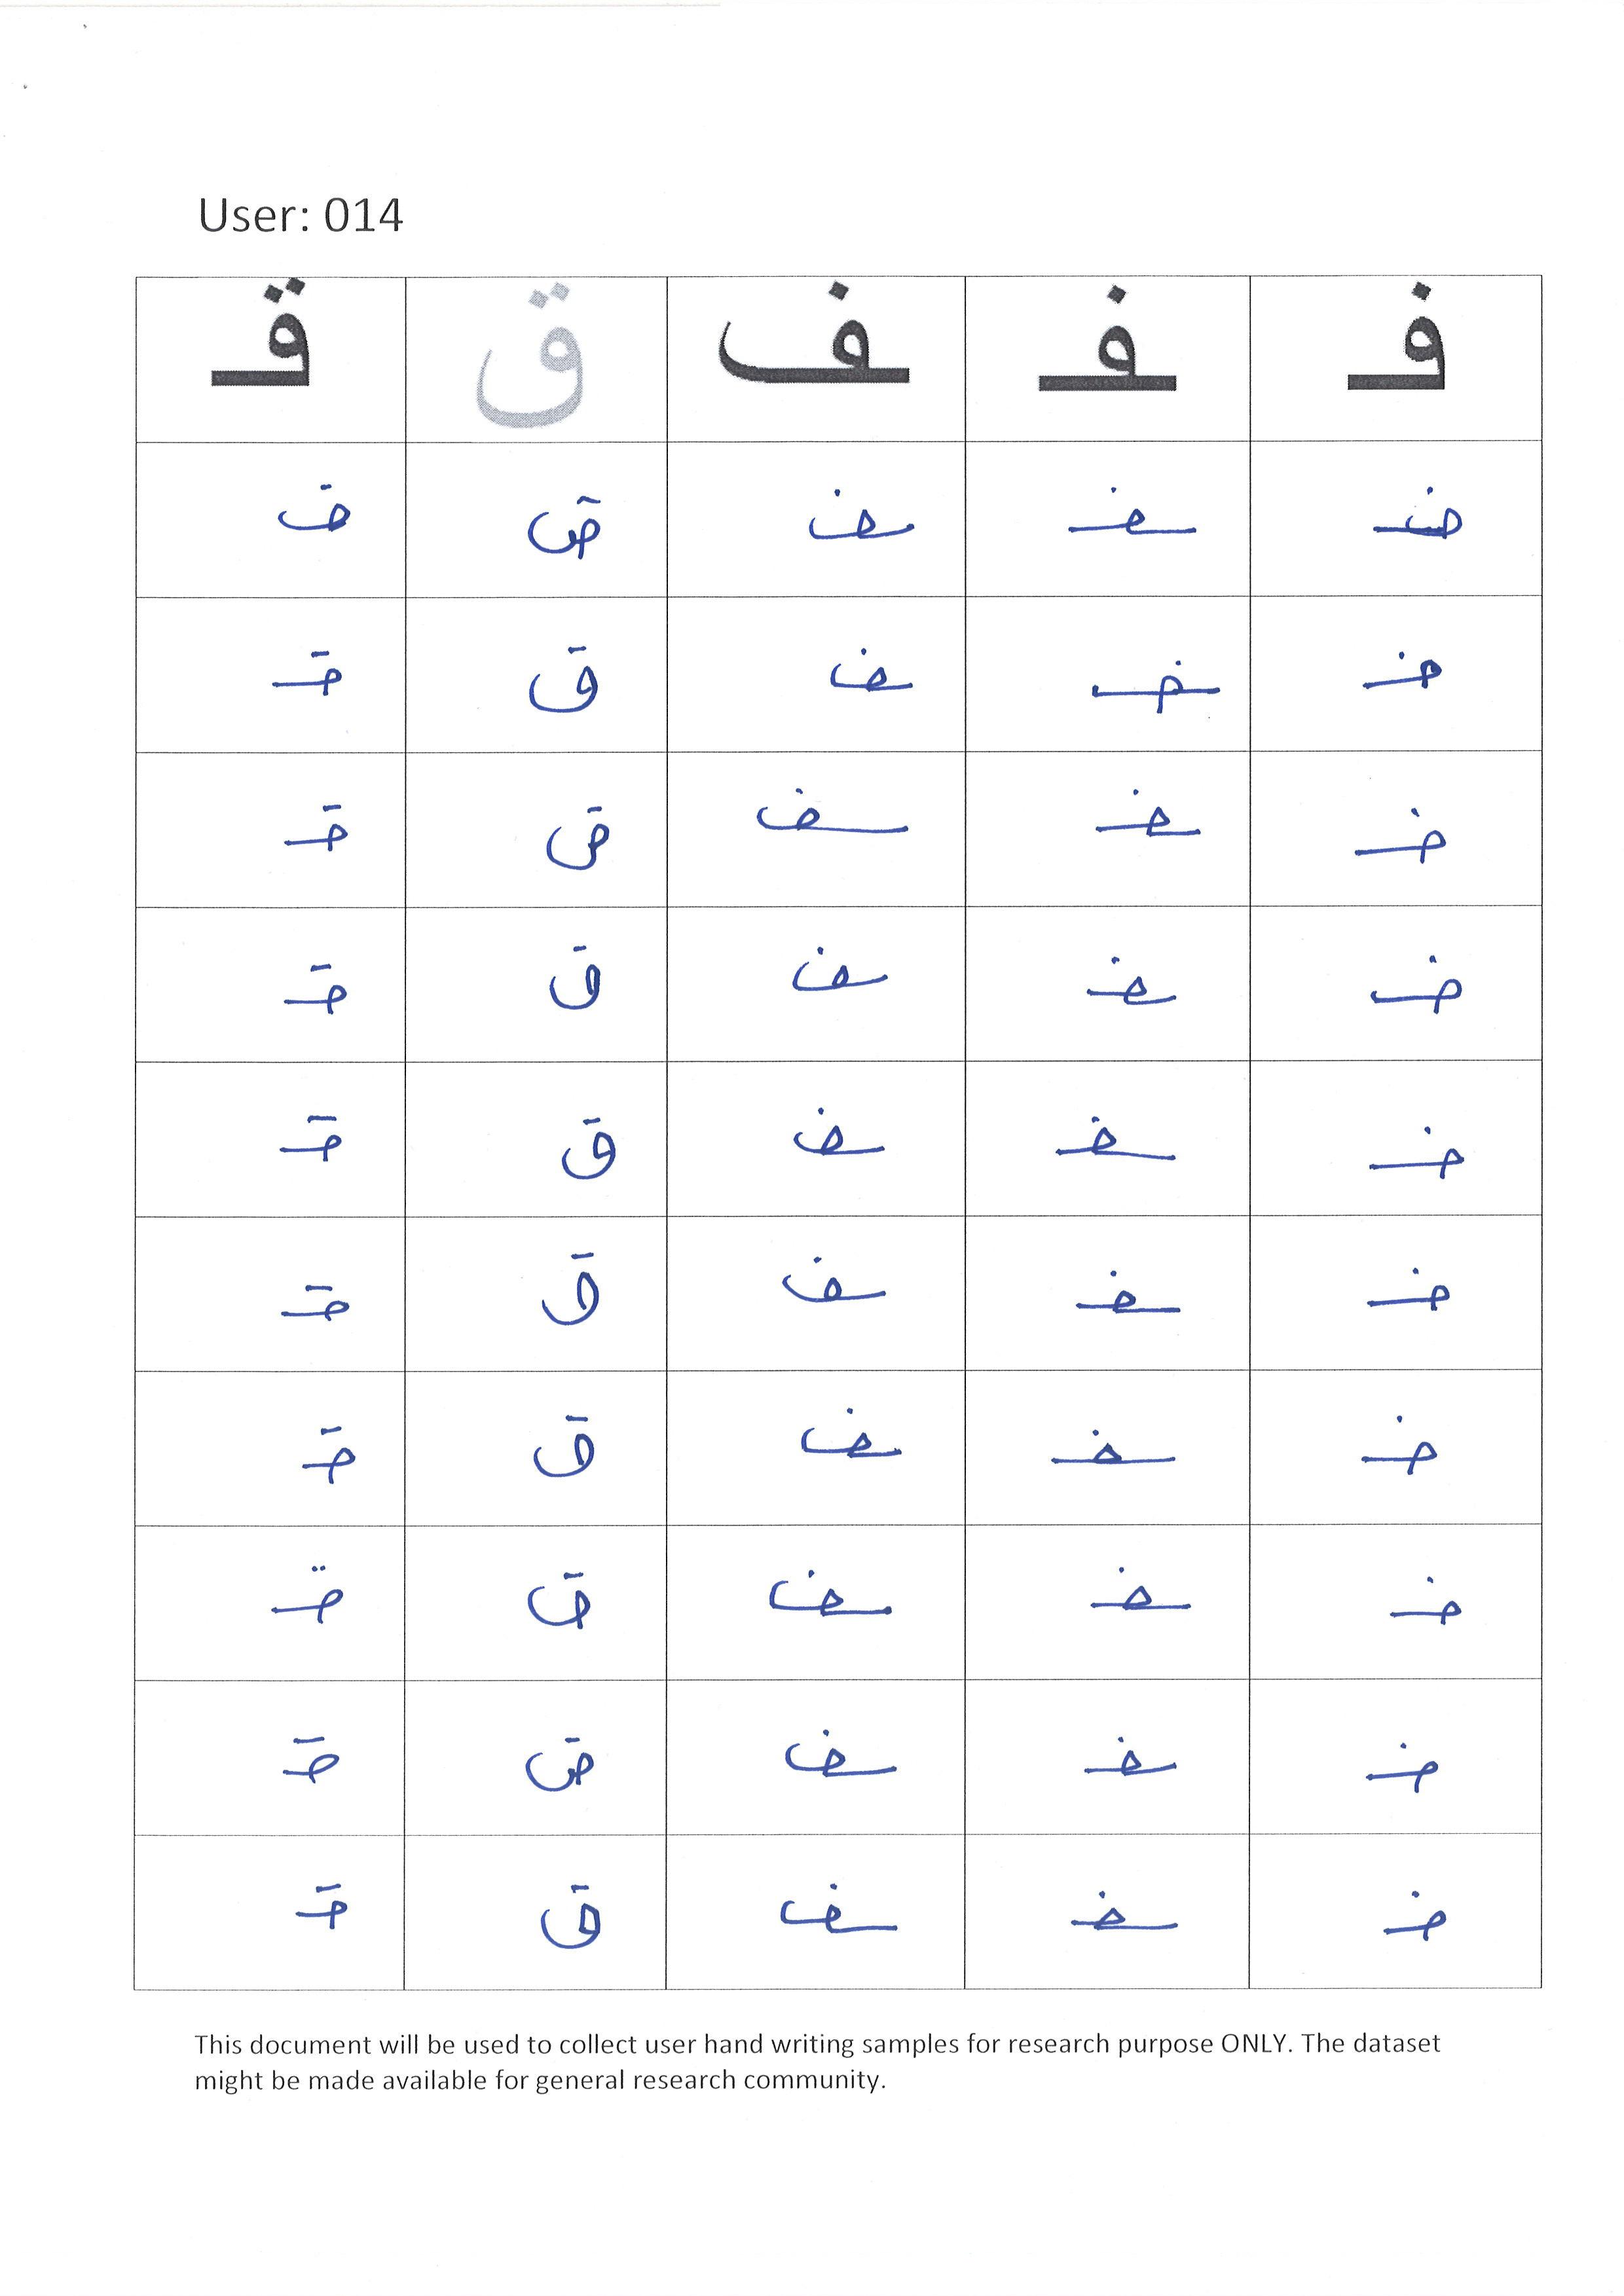 User: 014
فـ ـفـ ـف ق قـ
فـ ـفـ ـف ق قـ
فـ ـفـ ـف ق قـ
فـ ـفـ ـف ق قـ
فـ ـفـ ـف ق قـ
فـ ـفـ ـف ق قـ
فـ ـفـ ـف ق قـ
فـ ـفـ ـف ق قـ
فـ ـفـ ـف ق قـ
فـ ـفـ ـف ق قـ
فـ ـفـ ـف ق قـ
This document will be used to collect user hand writing samples for research purpose ONLY. The dataset
might be made available for general research community.